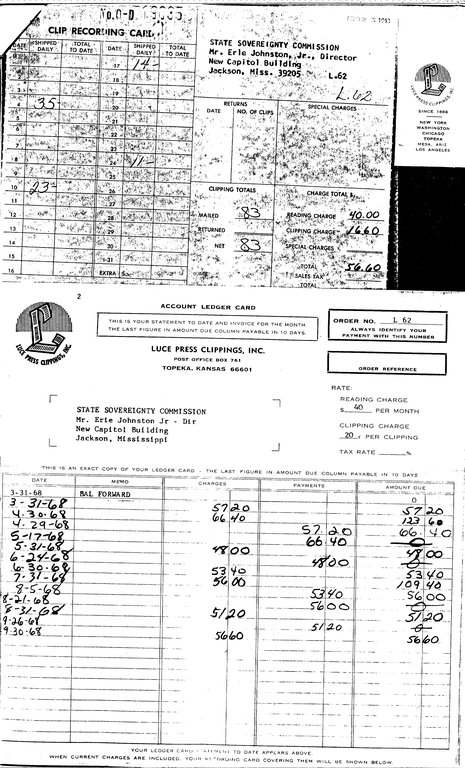 No. 0-D
CLIP RECORDING CARD
DATE SHIPPED DAILY TOTAL TO DATE DATE SHIPPED DAILY TOTAL TO DATE
17 14-
18
3 19
4 35- 20
5 21
22
7 23
8 24 11-
25
10 23- 26
11 27
12 28
13 29
14 30
15 31
16 EXTRA
STATE SOVEREIGNTY COMMISSION
Mr. Erle Johnston, Jr., Director
New Capitol Building
Jackson, Miss. 39205 L.62
L62
RETURNS
DATE NO. OF CLIPS
SPECIAL CHARGES
CLIPPING TOTALS
MAILED 83
RETURNED
NET 83
CHARGE TOTAL $
READING CHARGE 40.00
CLIPPING CHARGE 16.60
SPECIAL CHARGES
TOTAL 56.60
SALES TAX
TOTAL
LUCE PRESS CLIPPINGS, INC.
SINCE 1888
NEW YORK
WASHINGTON
CHICAGO
TOPEKA
MESA, ARIZ
LOS ANGELES
2
LUCE PRESS CLIPPINGS, INC.
ACCOUNT LEDGER CARD
THIS IS YOUR STATEMENT TO DATE AND INVOICE FOR THE MONTH.
THE LAST FIGURE IN AMOUNT DUE COLUMN PAYABLE IN 10 DAYS.
LUCE PRESS CLIPPINGS, INC.
POST OFFICE BOX 761
TOPEKA, KANSAS 66601
ORDER NO. L 62
ALWAYS IDENTIFY YOUR
PAYMENT WITH THIS NUMBER
ORDER REFERENCE
STATE SOVEREIGNTY COMMISSION
Mr. Erle Johnston Jr - Dir
New Capitol Building
Jackson, Mississippi
RATE:
READING CHARGE
$ 40 PER MONTH
CLIPPING CHARGE
20 ¢ PER CLIPPING
TAX RATE %
THIS IS AN EXACT COPY OF YOUR LEDGER CARD - THE LAST FIGURE IN AMOUNT DUE COLUMN PAYABLE IN 10 DAYS
DATE MEMO CHARGES PAYMENTS AMOUNT DUE
3-31-68 BAL FORWARD 0
3-31-68 57 20 57 20
4-30-68 66 40 123 60
4-29-68 57 20 66 40
5-17-68 66 40 0
5-31-68 48 00 48 00
6-24-68 48 00 0
6-30-68 53 40 53 40
7-31-68 56 00 109 40
8-5-68 53 40 56 00
8-21-68 56 00 0
8-31-68 51 20 51 20
9-26-68 51 20 0
9-30-68 56 60 56 60
YOUR LEDGER CARD STATEMENT TO DATE APPEARS ABOVE.
WHEN CURRENT CHARGES ARE INCLUDED, YOUR RECORDING CARD COVERING THEM WILL BE SHOWN BELOW.